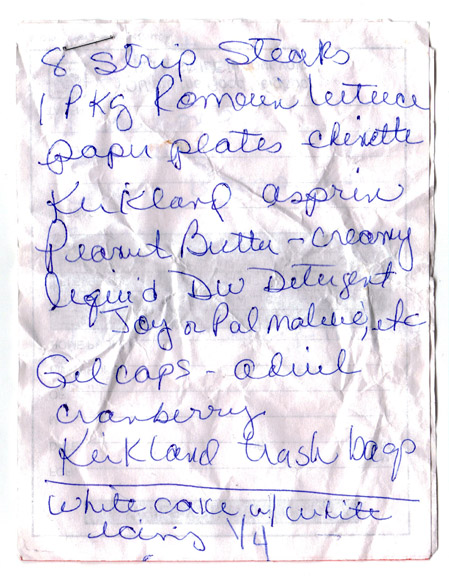 8 Strip Steaks
1 PKg Romain lettuce
paper plates chinette
Kirkland asprin
Peanut Butter - creamy
liquid DW Detergent
Joy or Palmolive, etc
Gel caps - advil
cranberry
Kirkland trash bags
White cake w/ white
icing 1/4